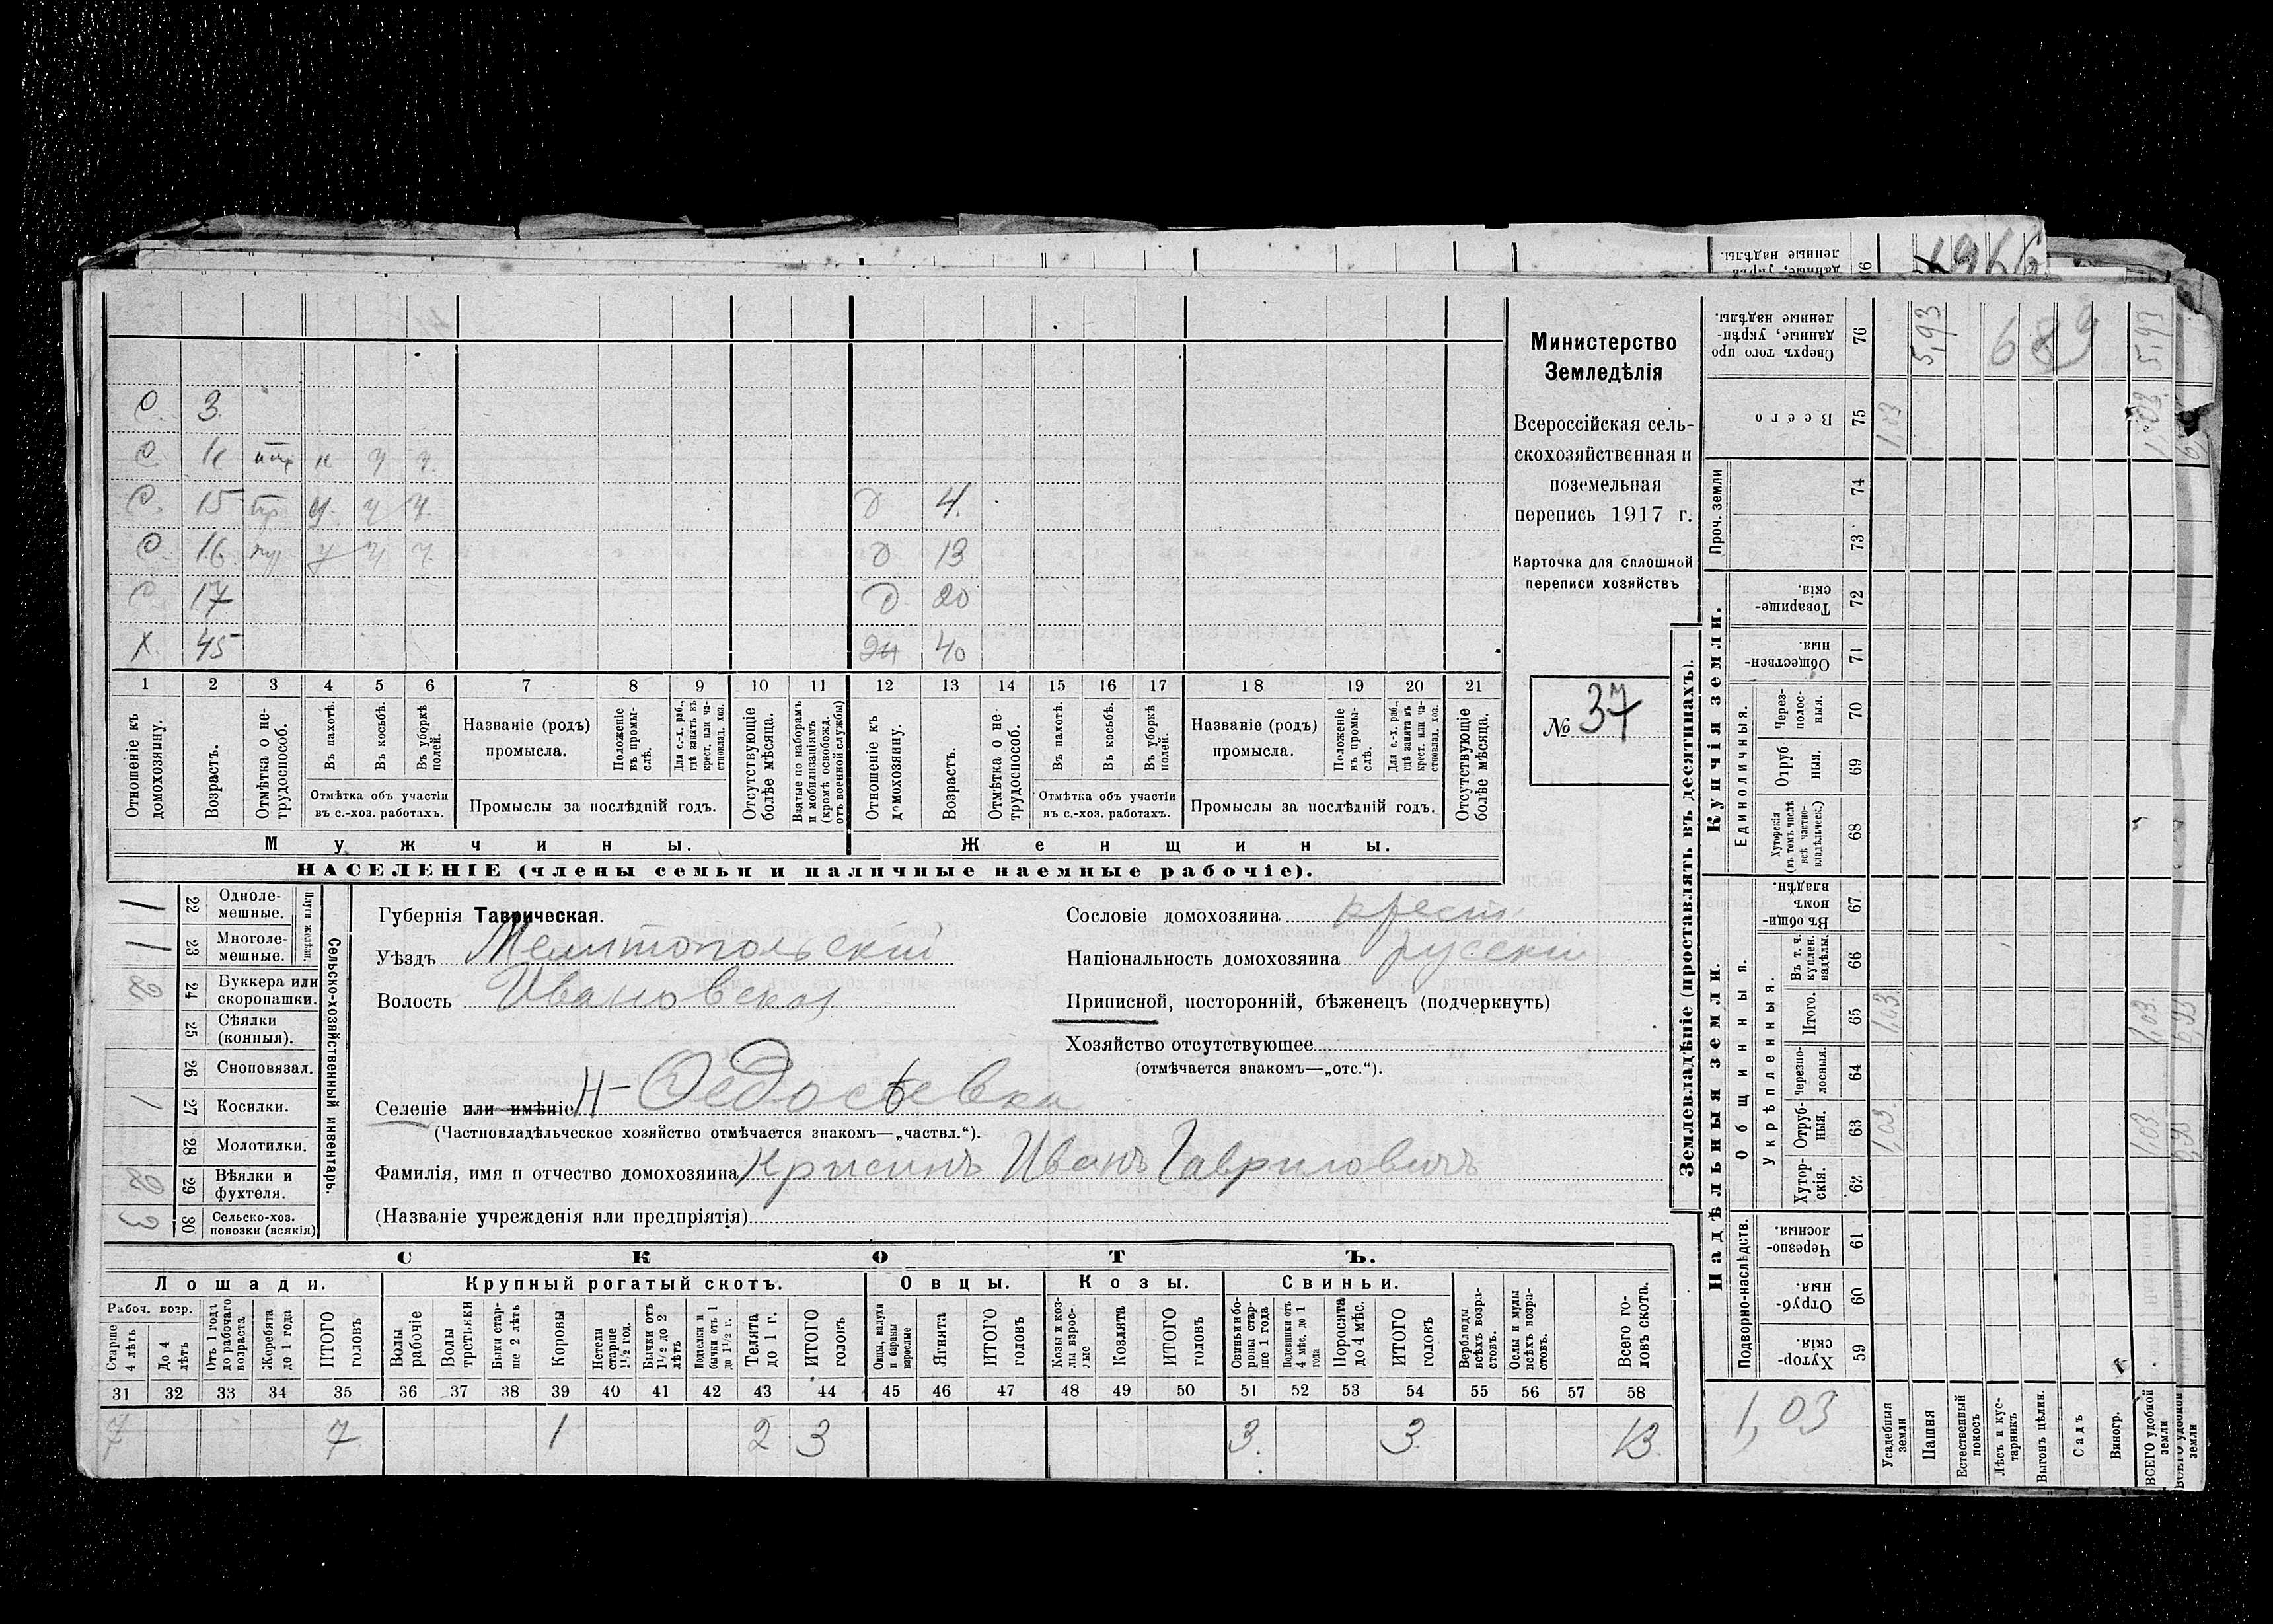 О. 3.
О
О. 15 О 4.
О. 16 О 13
О. 17 О 20
Х. 45 40
1 2 3 4 5 6 7 8 9 10 11 12 13 14 15 16 17 18 19 20 21
Отношеніе къ домохозяину.
Возрастъ.
Отмѣтка о нетрудоспособ.
Въ пахотѣ.
Въ косьбѣ.
Въ уборкѣ полей.
Отмѣтка объ участіи
въ с.-хоз. работахъ.
Названіе (родъ)
промысла.
Положеніе въ промыслѣ.
Для с.-х. раб., гдѣ занятъ въ крест. или частновлад. хоз.
Промыслы за послѣдній годъ.
Отсутствующіе болѣе мѣсяца.
Взятые по наборамъ и мобилизаціямъ (кромѣ освобожд. отъ военной службы)
Отношеніе къ домохозяину.
Возрастъ.
Отмѣтка о нетрудоспособ.
Въ пахотѣ.
Въ косьбѣ.
Въ уборкѣ полей.
Отмѣтка объ участіи
въ с.-хоз. работахъ.
Названіе (родъ)
промысла.
Положеніе въ промыслѣ.
Для с.-х. раб., гдѣ занята въ крест. или частновлад. хоз.
Промыслы за послѣдній годъ.
Отсутствующіе болѣе мѣсяца.
Мужчины. Женщины.
НАСЕЛЕНІЕ (члены семьи и наличные наемные рабочіе).
Министерство
Земледѣлія
Всероссійская сель-
скохозяйственная и
поземельная
перепись 1917 г.
Карточка для сплошной
переписи хозяйствъ
№ 37
Сельско-хозяйственный инвентарь.
Плуги желѣзн.
1 22 Однолемешные.
1 23 Многолемешные.
2 24 Буккера или скоропашки.
25 Сѣялки (конныя).
26 Сноповязал.
1 27 Косилки.
28 Молотилки.
2 29 Вѣялки и фухтеля.
3 30 Сельско-хоз. повозки (всякія)
Губернія Таврическая.
Уѣздъ Мелитопольскій
Волость Ивановская
Селеніе или имѣніе Н-Федосѣевка
(Частновладѣльческое хозяйство отмѣчается знакомъ—„частвл.“).
Фамилія, имя и отчество домохозяина Крысинъ Иванъ Гавриловичъ
(Названіе учрежденія или предпріятія)
Сословіе домохозяина крест.
Національность домохозяина русски
Приписной, посторонній, бѣженецъ (подчеркнуть)
Хозяйство отсутствующее
(отмѣчается знакомъ—„отс.“).
СКОТЪ.
Лошади. Крупный рогатый скотъ. Овцы. Козы. Свиньи.
Рабоч. возр.
Старше 4 лѣтъ
До 4 лѣтъ
Отъ 1 года до рабочаго возраста
Жеребята до 1 года
ИТОГО головъ
Волы рабочіе
Волы третьяки
Быки старше 2 лѣтъ
Коровы
Нетели старше 1½ год.
Бычки отъ 1½ до 2 лѣтъ
Подтелки и бычки отъ 1 до 1½ г.
Телята до 1 г.
ИТОГО головъ
Овцы, валухи и бараны взрослые
Ягнята
ИТОГО головъ
Козы и козлы взрослые
Козлята
ИТОГО головъ
Свиньи и боровы старше 1 года
Подсвинки отъ 4 мѣс. до 1 года
Поросята до 4 мѣс.
ИТОГО головъ
Верблюды всѣхъ возрастовъ.
Ослы и мулы всѣхъ возрастовъ.
Всего головъ скота.
31 32 33 34 35 36 37 38 39 40 41 42 43 44 45 46 47 48 49 50 51 52 53 54 55 56 57 58
7 7 1 2 3 3. 3. 13.
Землевладѣніе (проставлять въ десятинахъ).
Надѣльныя земли. Купчія земли.
Подворно-наслѣдств.
Общинныя.
Укрѣпленныя.
Единоличныя.
Проч. земли
Хуторскія. 59
Отрубныя. 60
Черезполосныя. 61
Хуторскія. 62
Отрубныя. 63
Черезполосныя. 64
Итого. 65
Въ т. ч. куплен. надѣлы. 66
Въ общинномъ владѣн. 67
Хуторскія (въ томъ числѣ всѣ частновладѣльческ.) 68
Отрубныя. 69
Черезполосныя. 70
Общественныя. 71
Товарищескія. 72
73
74
Всего 75
Сверхъ того проданные, укрѣпленные надѣлы. 76
1,03
Усадебныя земли 1,03 1,03 1,03
Пашня 5,93
Естественный покосъ
Лѣсъ и кустарникъ
Выгонъ цѣлин.
Садъ
Виногр.
ВСЕГО удобной земли 1,03 1,03 1,03 5,93
689